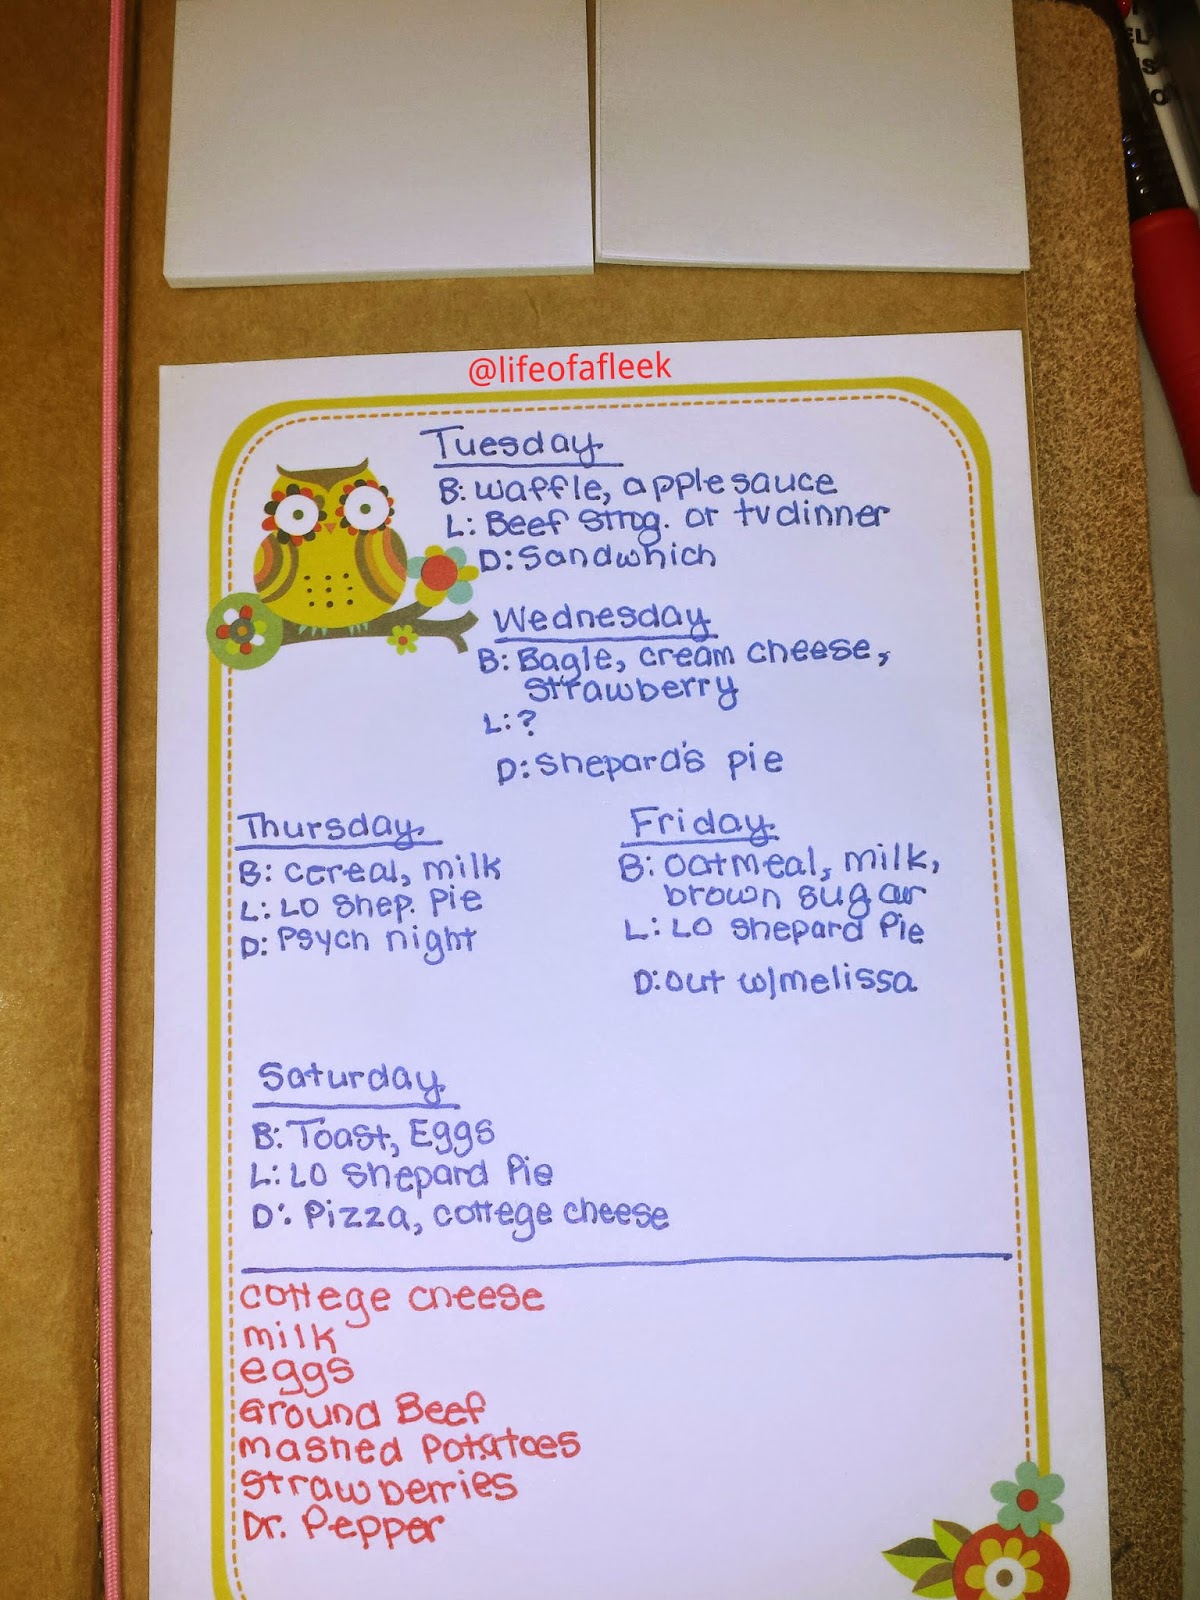 @lifeofafleek
Tuesday
B: waffle, applesauce
L: Beef strog. or tv dinner
D: Sandwhich
Wednesday
B: Bagle, cream cheese,
strawberry
L: ?
D: Shepard's pie
Thursday
B: cereal, milk
L: LO Shep. Pie
D: Psych night
Friday
B: Oatmeal, milk,
brown sugar
L: LO Shepard Pie
D: out w/melissa
Saturday
B: Toast, Eggs
L: LO Shepard Pie
D: Pizza, cottege cheese
cottege cheese
milk
eggs
Ground Beef
mashed Potatoes
strawberries
Dr. Pepper